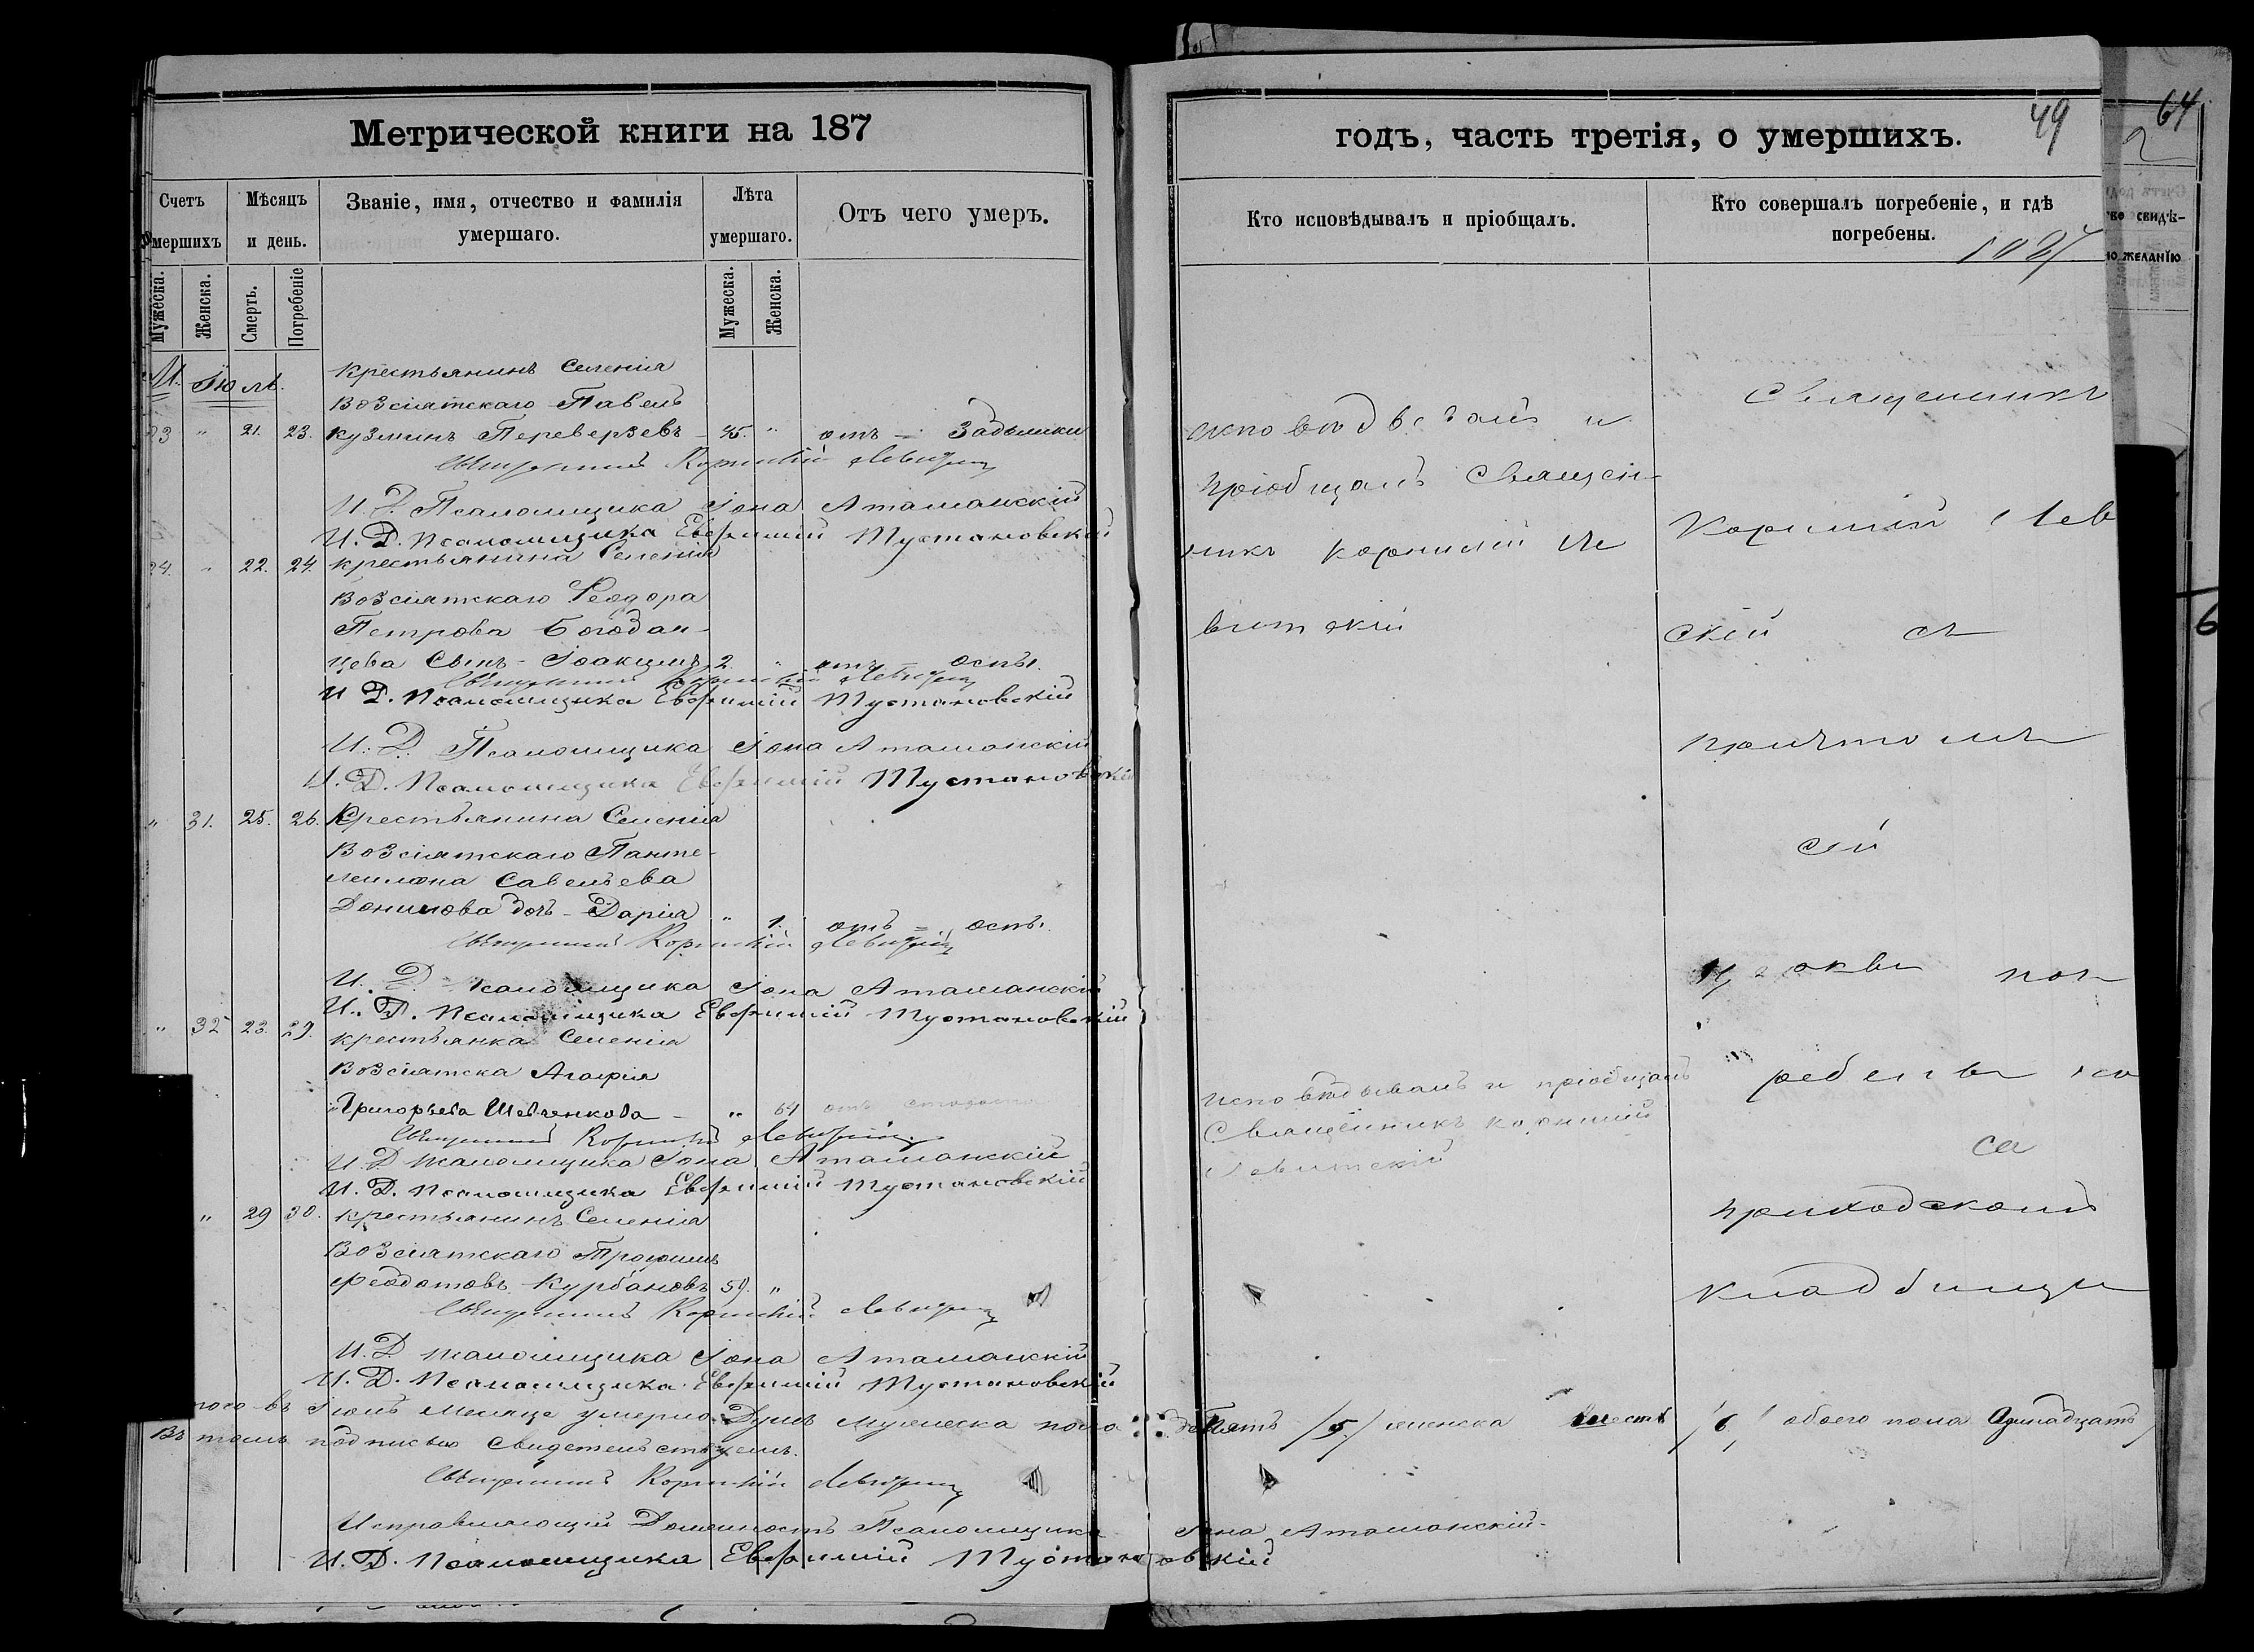 Метрической книги на 187
Счетъ умершихъ
Мѣсяцъ и день.
Званіе, имя, отчество и фамилія умершаго.
Лѣта умершаго.
Отъ чего умеръ.
Мужеска.
Женска.
Смерть.
Погребеніе
Мужеска.
Женска.
М. Іюль.
Крестьянинъ Селенія
Возсіятскаго Павелъ
23 " 21. 23. Кузминъ Переверзевъ – 45. " отъ = Задышки
Священникъ Корнилій Левитскій
И. Д. Псаломщика Іона Атаманскій
И. Д. Псаломщика Евфимій Тустановскій
24. " 22. 24. Крестьянина Селенія
Возсіятскаго Феодора
Петрова Богдан-
цева Сынъ – Іоакимъ 2. " отъ = оспы.
Священникъ Корнилій Левитскій
И. Д. Псаломщика Евфимій Тустановскій
И. Д. Псаломщика Іона Атаманскій
И. Д. Псаломщика Евфимій Тустановскій
" 31. 25. 26. Крестьянина Селенія
Возсіятскаго Панте-
леимона Савельева
Данилова дочь – Дарія " 1. отъ = оспы.
Священникъ Корнилій Левитскій
И. Д. Псаломщика Іона Атаманскій
И. Д. Псаломщика Евфимій Тустановскій
" 32 23. 29. Крестьянка Селенія
Возсіятска Агафія
Григорьева Шевченкова – " 64 отъ старости
Священникъ Корнилій Левитскій
И. Д. Псаломщика Іона Атаманскій
И. Д. Псаломщика Евфимій Тустановскій
" 29 30. Крестьянинъ Селенія
Возсіятскаго Трофимъ
Феодотовъ Курбановъ 59. "
Священникъ Корнилій Левитскій
И. Д. Псаломщика Іона Атаманскій
И. Д. Псаломщика Евфимій Тустановскій
того въ Іюль месяце умерло Душъ мужеска пола
Въ томъ подписью свидетельствуемъ.
Священникъ Корнилій Левитскій
Исправляющій Должность Псаломщика Іона Атаманскій
И. Д. Псаломщика Евфимій Тустановскій
годъ, часть третія, о умершихъ.
49
64
2
Кто исповѣдывалъ и пріобщалъ.
Кто совершалъ погребеніе, и гдѣ погребены.
во свидѣ-
ю желанію
исповѣдывалъ и
пріобщалъ Священ-
никъ Корнилій Ле
витскій
исповѣдывалъ и пріобщалъ
Священникъ Корнилій
Левитскій
Священникъ
Корнилій Лев
скій съ
причтомъ
сей
церкви пог
ребены на
се
приходскомъ
кладбищи
/5/ женска шесть /6/ обоего пола Одинадцать
6